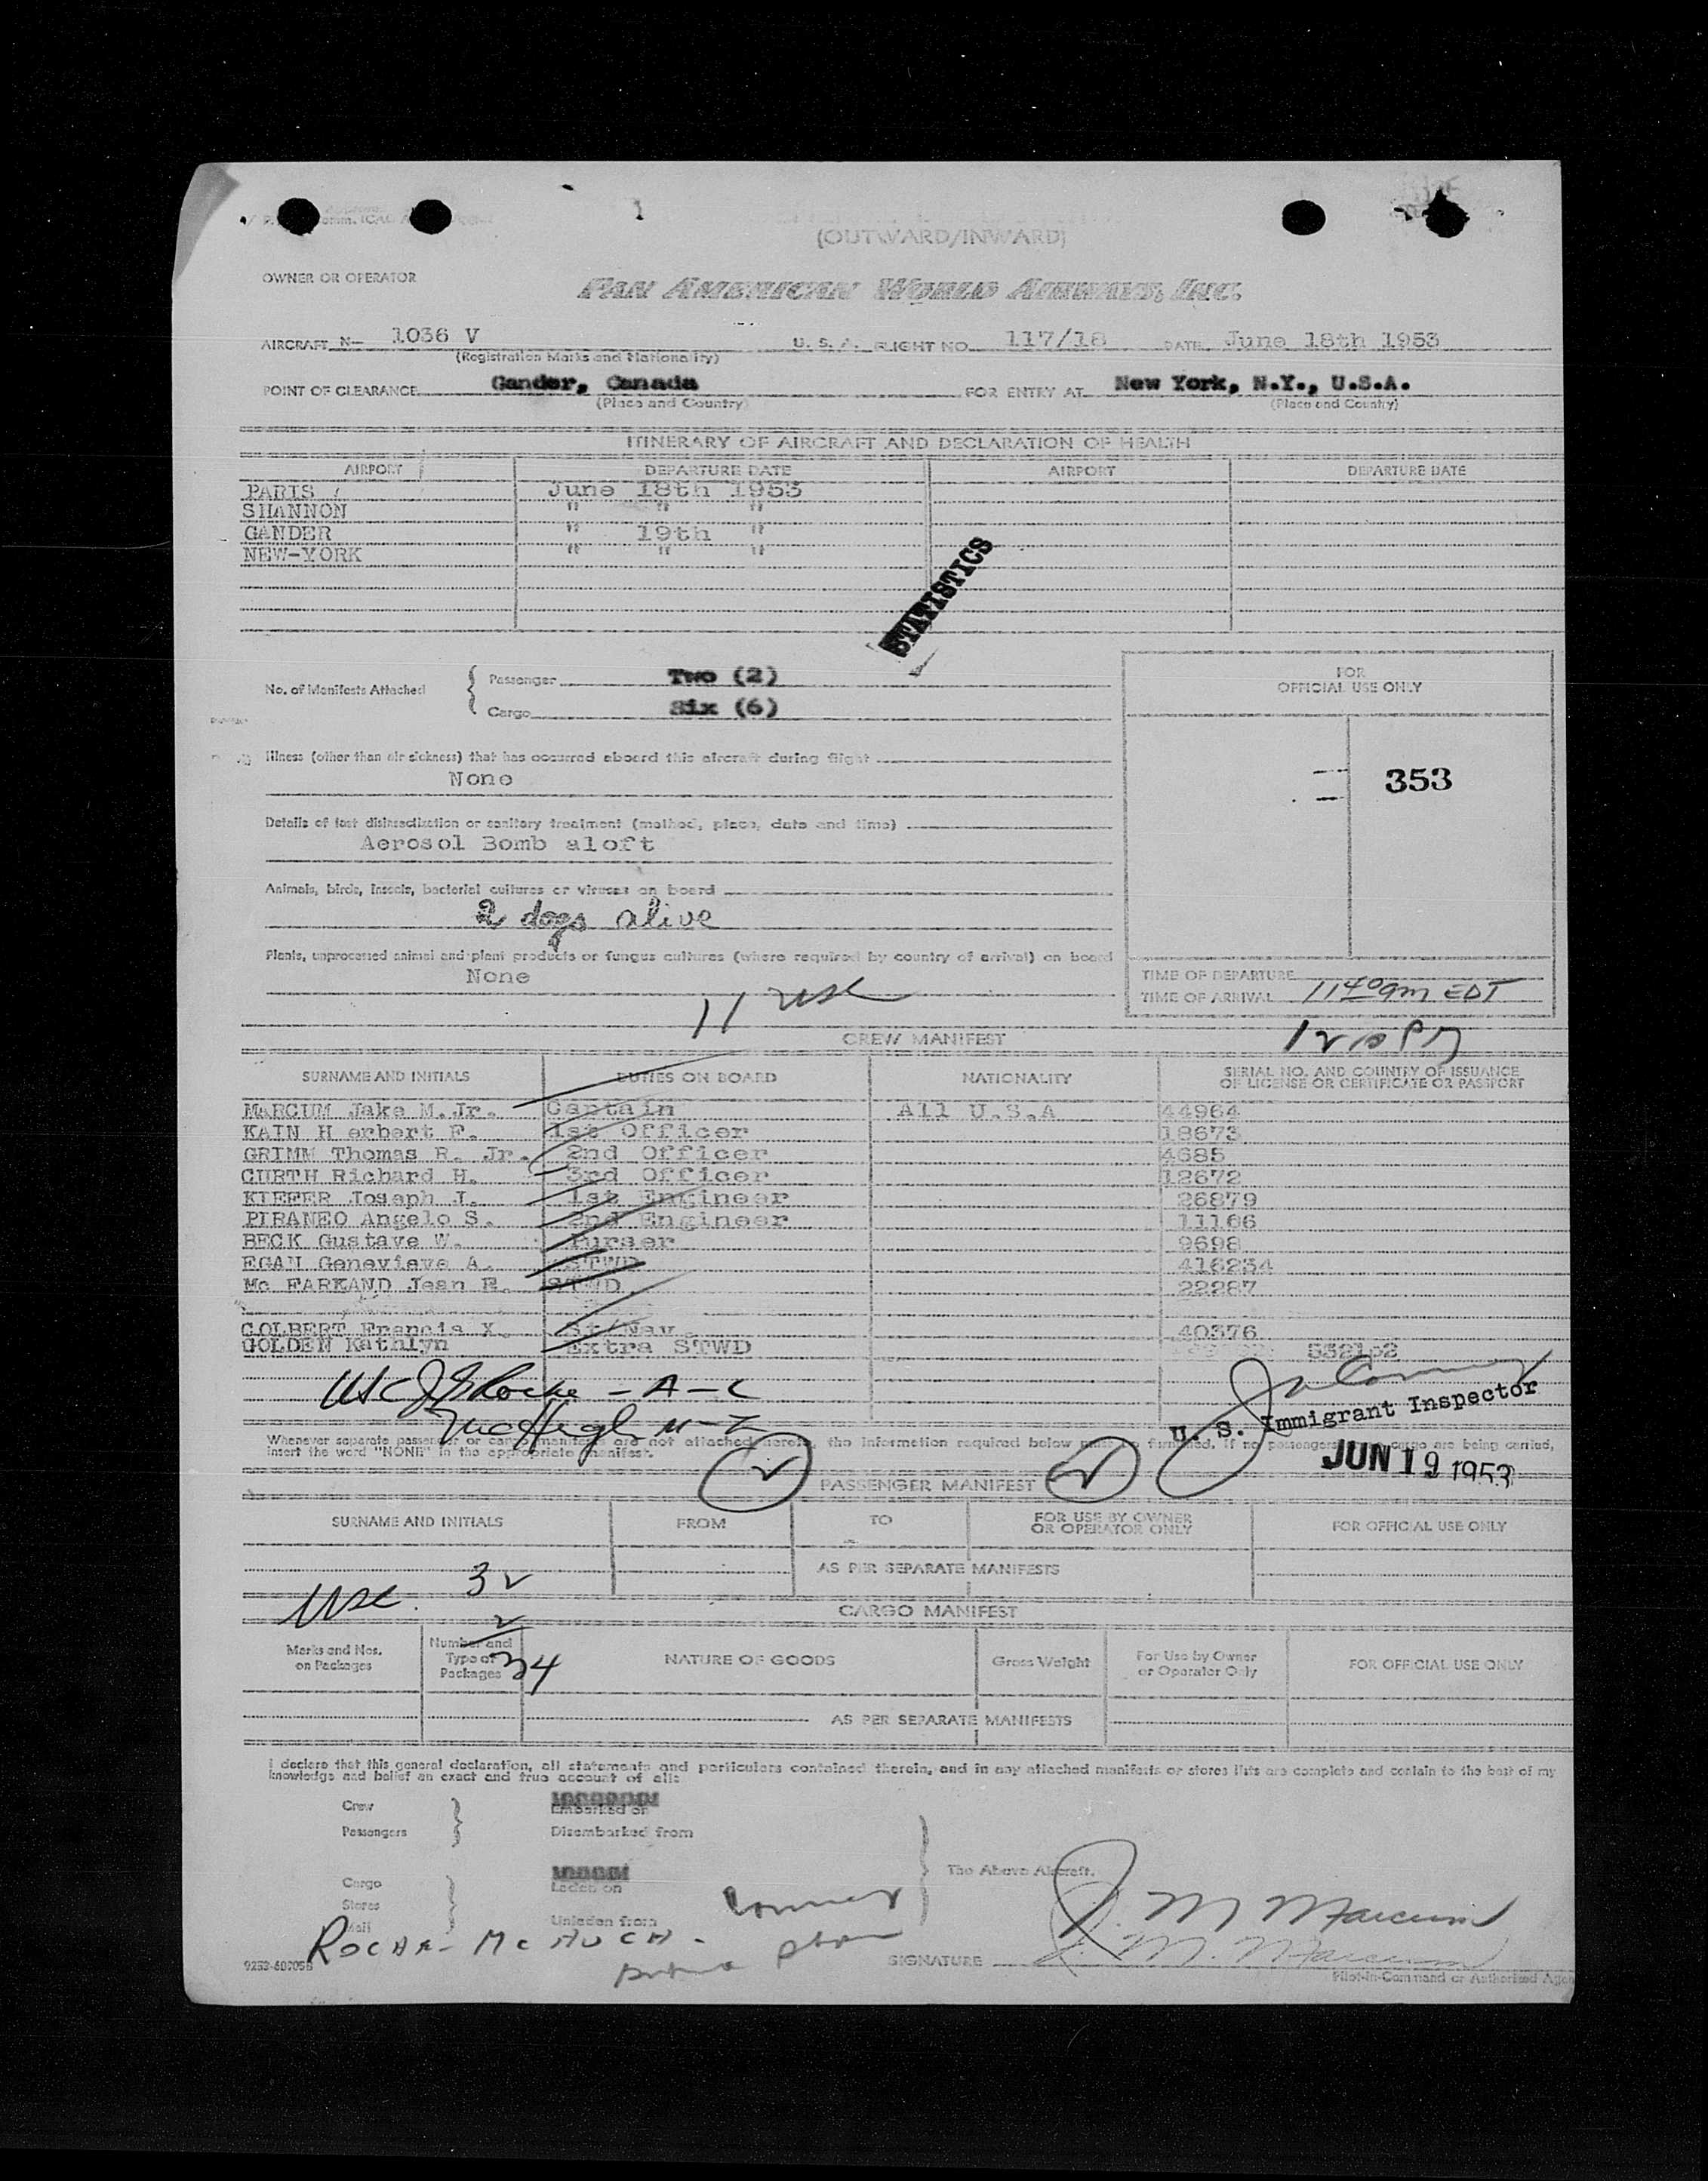 (OUTWARD/INWARD)
OWNER OR OPERATOR PAN AMERICAN WORLD AIRWAYS, INC.
AIRCRAFT N— 1036 V U. S. A. FLIGHT NO. 117/18 DATE June 18th 1953
(Registration Marks and Nationality)
POINT OF CLEARANCE Gander, Canada FOR ENTRY AT New York, N.Y., U.S.A.
(Place and Country) (Place and Country)
ITINERARY OF AIRCRAFT AND DECLARATION OF HEALTH
AIRPORT DEPARTURE DATE AIRPORT DEPARTURE DATE
PARIS June 18th 1953
SHANNON " " "
GANDER " 19th "
NEW-YORK " " "
STATISTICS
No. of Manifests Attached
Passenger Two (2)
Cargo Six (6)
FOR
OFFICIAL USE ONLY
Illness (other than air sickness) that has occurred aboard this aircraft during flight
None
353
Details of last disinsectization or sanitary treatment (method, place, date and time)
Aerosol Bomb aloft
Animals, birds, insects, bacterial cultures or viruses on board
2 dogs alive
Plants, unprocessed animal and plant products or fungus cultures (where required by country of arrival) on board
None
TIME OF DEPARTURE
TIME OF ARRIVAL 1140am EDT
11 USC
1210 PM
CREW MANIFEST
SURNAME AND INITIALS DUTIES ON BOARD NATIONALITY SERIAL NO. AND COUNTRY OF ISSUANCE
OF LICENSE OR CERTIFICATE OR PASSPORT
MARCUM Jake M.Jr. Captain All U.S.A 44964
KAIN H erbert F. 1st Officer 18673
GRIMM Thomas R. Jr. 2nd Officer 4685
CURTH Richard H. 3rd Officer 12672
KIEFER Joseph J. 1st Engineer 26879
PIRANEO Angelo S. 2nd Engineer 11166
BECK Gustave W. Purser 9698
EGAN Genevieve A. STWD 416234
Mc FARKAND Jean E. STWD 22287
COLBERT Francis X. St/Nav. 40376
GOLDEN Kathlyn Extra STWD 532152
USC J Roche - A-L
McHugh M-Z
U. S. Immigrant Inspector
JUN 19 1953
Whenever separate passenger or cargo manifests are not attached hereto, the information required below must be furnished. If no passengers or cargo are being carried,
insert the word "NONE" in the appropriate manifest.
PASSENGER MANIFEST
SURNAME AND INITIALS FROM TO FOR USE BY OWNER
OR OPERATOR ONLY FOR OFFICIAL USE ONLY
AS PER SEPARATE MANIFESTS
USC 32
2
34
CARGO MANIFEST
Marks and Nos.
on Packages
Number and
Type of
Packages
NATURE OF GOODS Gross Weight For Use by Owner
or Operator Only FOR OFFICIAL USE ONLY
AS PER SEPARATE MANIFESTS
I declare that this general declaration, all statements and particulars contained therein, and in any attached manifests or stores lists are complete and contain to the best of my
knowledge and belief an exact and true account of all:
Crew Embarked on
Passengers Disembarked from
The Above Aircraft.
Cargo Laden on
Stores
Mail Unladen from
J. M Marcum
ROCHE- MC HUGH.
SIGNATURE J. M. Marcum
9253-60705B Pilot-in-Command or Authorized Agent